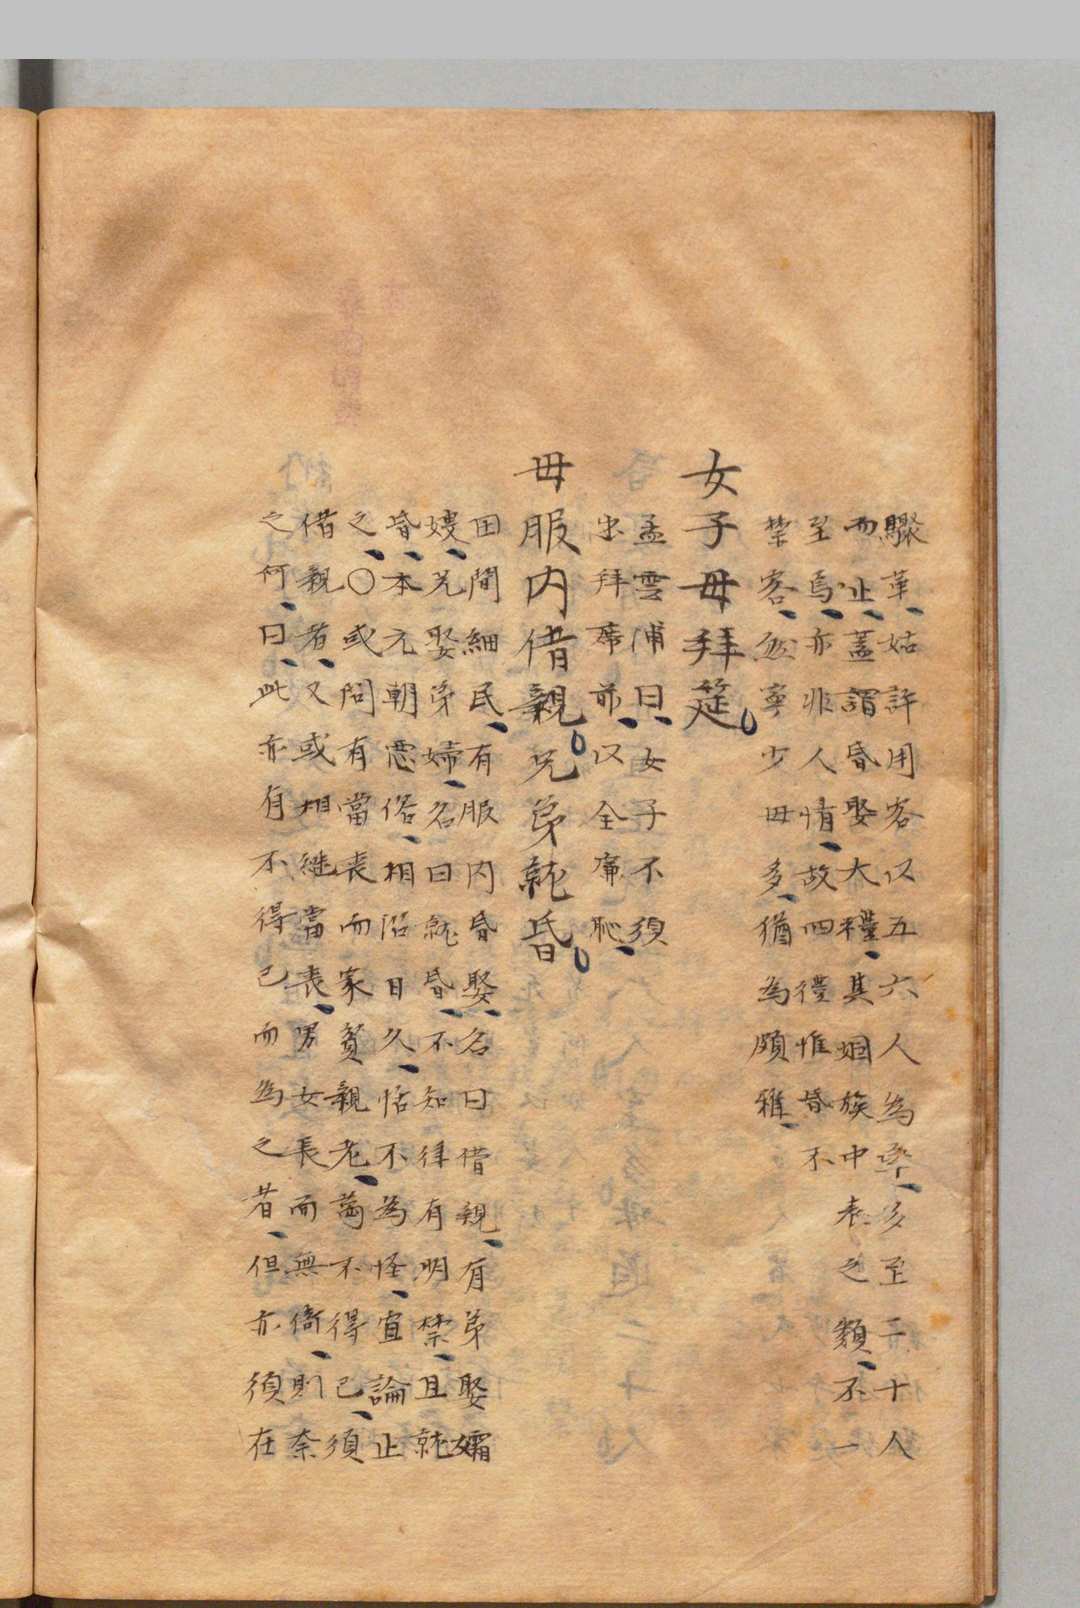 驟革、姑許用客以五六人為率、多至二十人
而止、蓋謂昏娶大禮、其姻族中表之類、不一
至焉、亦非人情、故四禮惟昏不
禁客、然寧少毋多、猶為頗雅、
女子毋拜筵
孟雲浦曰、女子不須
出拜席前、以全廉恥、
毋服内借親兄弟就昏
田間細民、有服内昏娶、名曰借親、有弟娶孀
嫂、兄娶弟婦、名曰就昏、不知律有明禁、且就
昏、本元朝惡俗、相沿日久、恬不為怪、宜論止
之、〇或問有當喪而家貧親老、萬不得已、須
借親者、又或相継當喪、男女長而無倚、則奈
之何、曰、此亦有不得已而為之者、但亦須在